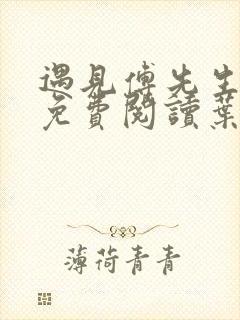 遇見傅先生
免費閱讀葉
薄荷青青